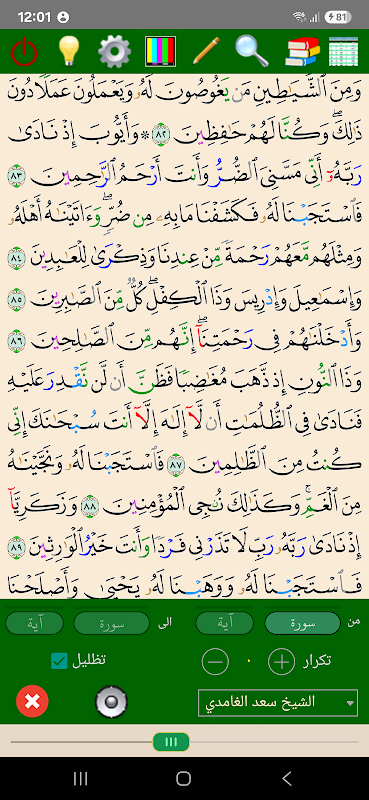 12:01
81
وَمِنَ ٱلشَّيَٰطِينِ مَن يَغُوصُونَ لَهُۥ وَيَعْمَلُونَ عَمَلًا دُونَ
ذَٰلِكَۖ وَكُنَّا لَهُمْ حَٰفِظِينَ ٨٢ ۞ وَأَيُّوبَ إِذْ نَادَىٰ
رَبَّهُۥٓ أَنِّي مَسَّنِيَ ٱلضُّرُّ وَأَنتَ أَرْحَمُ ٱلرَّٰحِمِينَ ٨٣
فَٱسْتَجَبْنَا لَهُۥ فَكَشَفْنَا مَا بِهِۦ مِن ضُرّٖۖ وَءَاتَيْنَٰهُ أَهْلَهُۥ
وَمِثْلَهُم مَّعَهُمْ رَحْمَةٗ مِّنْ عِندِنَا وَذِكْرَىٰ لِلْعَٰبِدِينَ ٨٤
وَإِسْمَٰعِيلَ وَإِدْرِيسَ وَذَا ٱلْكِفْلِۖ كُلّٞ مِّنَ ٱلصَّٰبِرِينَ ٨٥
وَأَدْخَلْنَٰهُمْ فِي رَحْمَتِنَآۖ إِنَّهُم مِّنَ ٱلصَّٰلِحِينَ ٨٦
وَذَا ٱلنُّونِ إِذ ذَّهَبَ مُغَٰضِبٗا فَظَنَّ أَن لَّن نَّقْدِرَ عَلَيْهِ
فَنَادَىٰ فِي ٱلظُّلُمَٰتِ أَن لَّآ إِلَٰهَ إِلَّآ أَنتَ سُبْحَٰنَكَ إِنِّي
كُنتُ مِنَ ٱلظَّٰلِمِينَ ٨٧ فَٱسْتَجَبْنَا لَهُۥ وَنَجَّيْنَٰهُ
مِنَ ٱلْغَمِّۚ وَكَذَٰلِكَ نُـۨجِي ٱلْمُؤْمِنِينَ ٨٨ وَزَكَرِيَّآ
إِذْ نَادَىٰ رَبَّهُۥ رَبِّ لَا تَذَرْنِي فَرْدٗا وَأَنتَ خَيْرُ ٱلْوَٰرِثِينَ ٨٩
فَٱسْتَجَبْنَا لَهُۥ وَوَهَبْنَا لَهُۥ يَحْيَىٰ وَأَصْلَحْنَا
من سورة آية الى سورة آية
تكرار + ٠ − تظليل
الشيخ سعد الغامدي